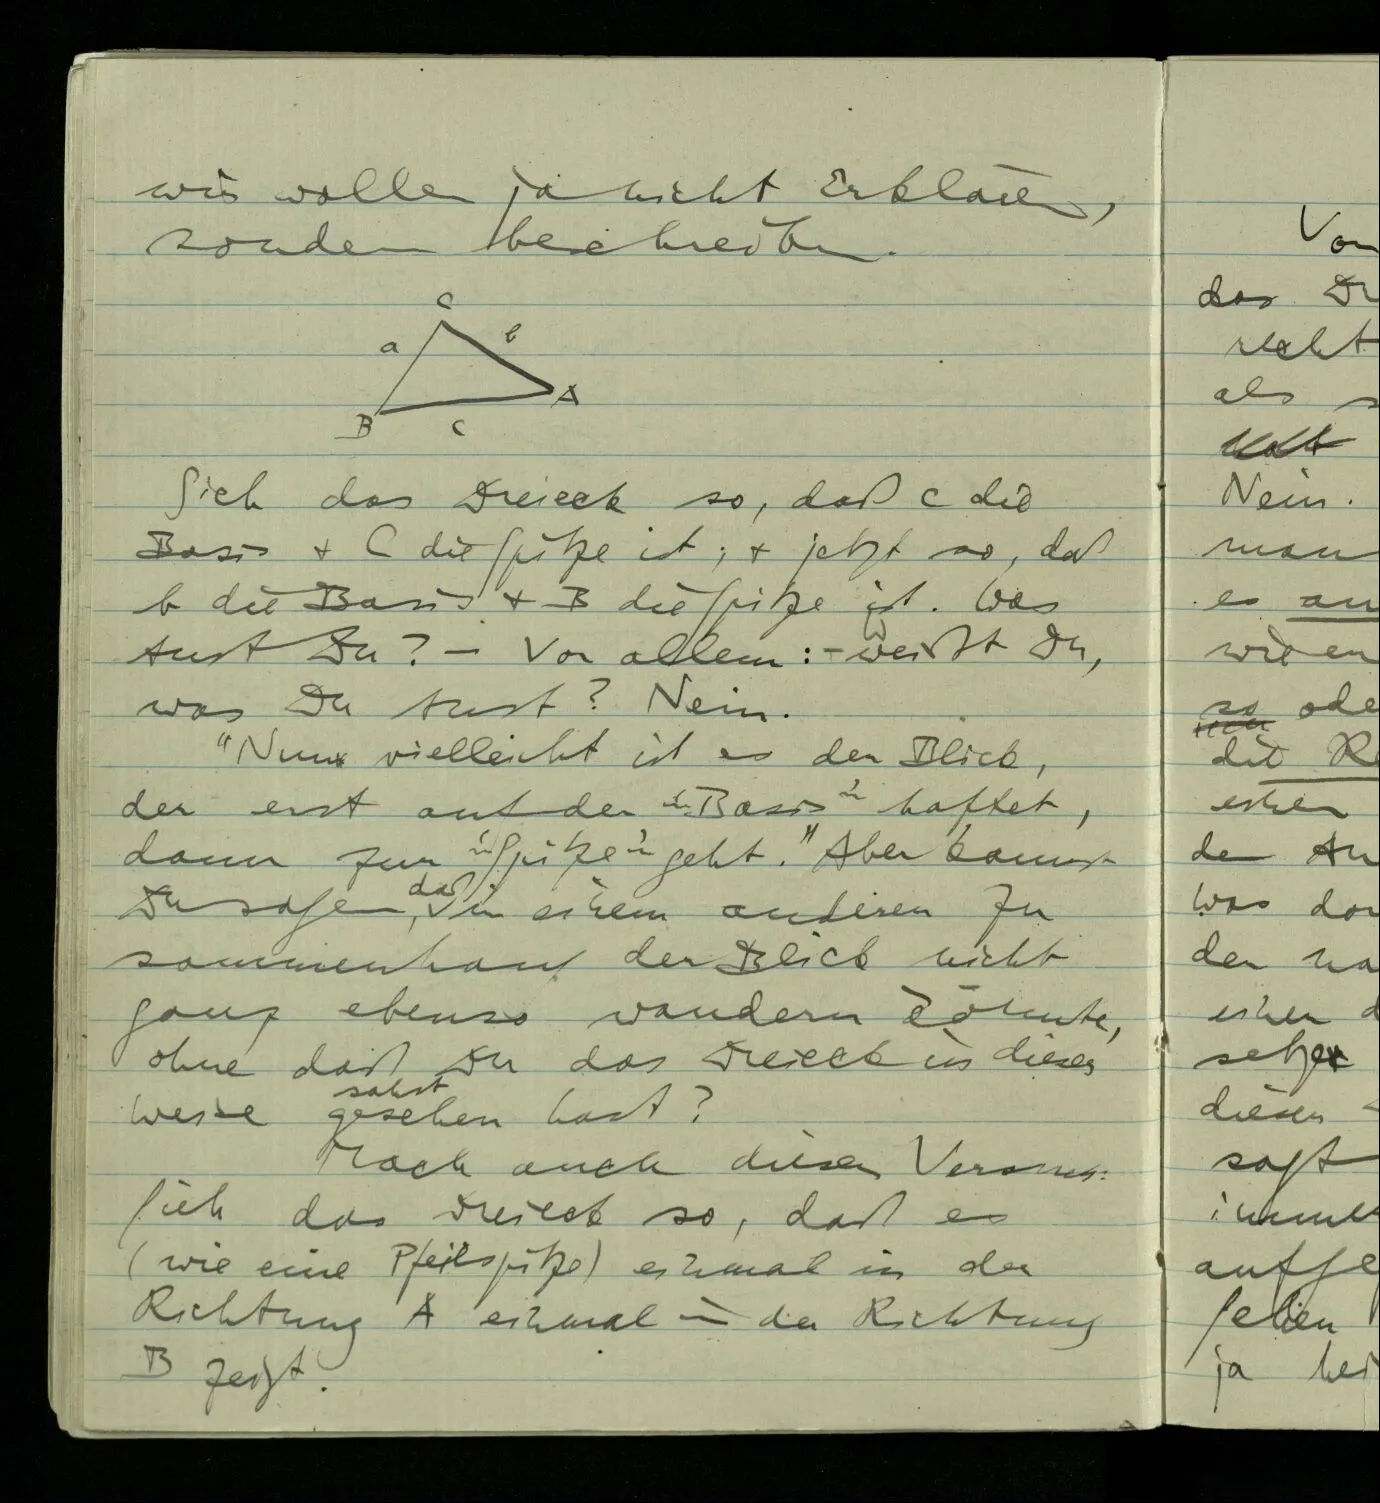 wir wollen ja nicht erklären,
sondern beschreiben.
C
a b
A
B c
Sieh das Dreieck so, daß c die
Basis + C die Spitze ist; + jetzt so, daß
b die Basis + B die Spitze ist. Was
tust Du? – Vor allem: – weißt Du,
was Du tust? Nein.
"Nun vielleicht ist es der Blick,
der erst auf der "Basis" haftet,
dann zur "Spitze" geht." Aber kannst
Du sagen, daß in einem anderen Zu
sammenhang der Blick nicht
ganz ebenso wandern könnte,
ohne daß Du das Dreieck in dieser
sahst
Weise gesehen hast?
Mach auch diesen Versuch:
Sieh das Dreieck so, daß es
(wie eine Pfeilspitze) einmal in der
Richtung A einmal in der Richtung
B zeigt.
Von
das
recht
als
Nein.
man
es
wie
so
die
einen
den
Was
den
einen
setzt
diesen
sagt
ja